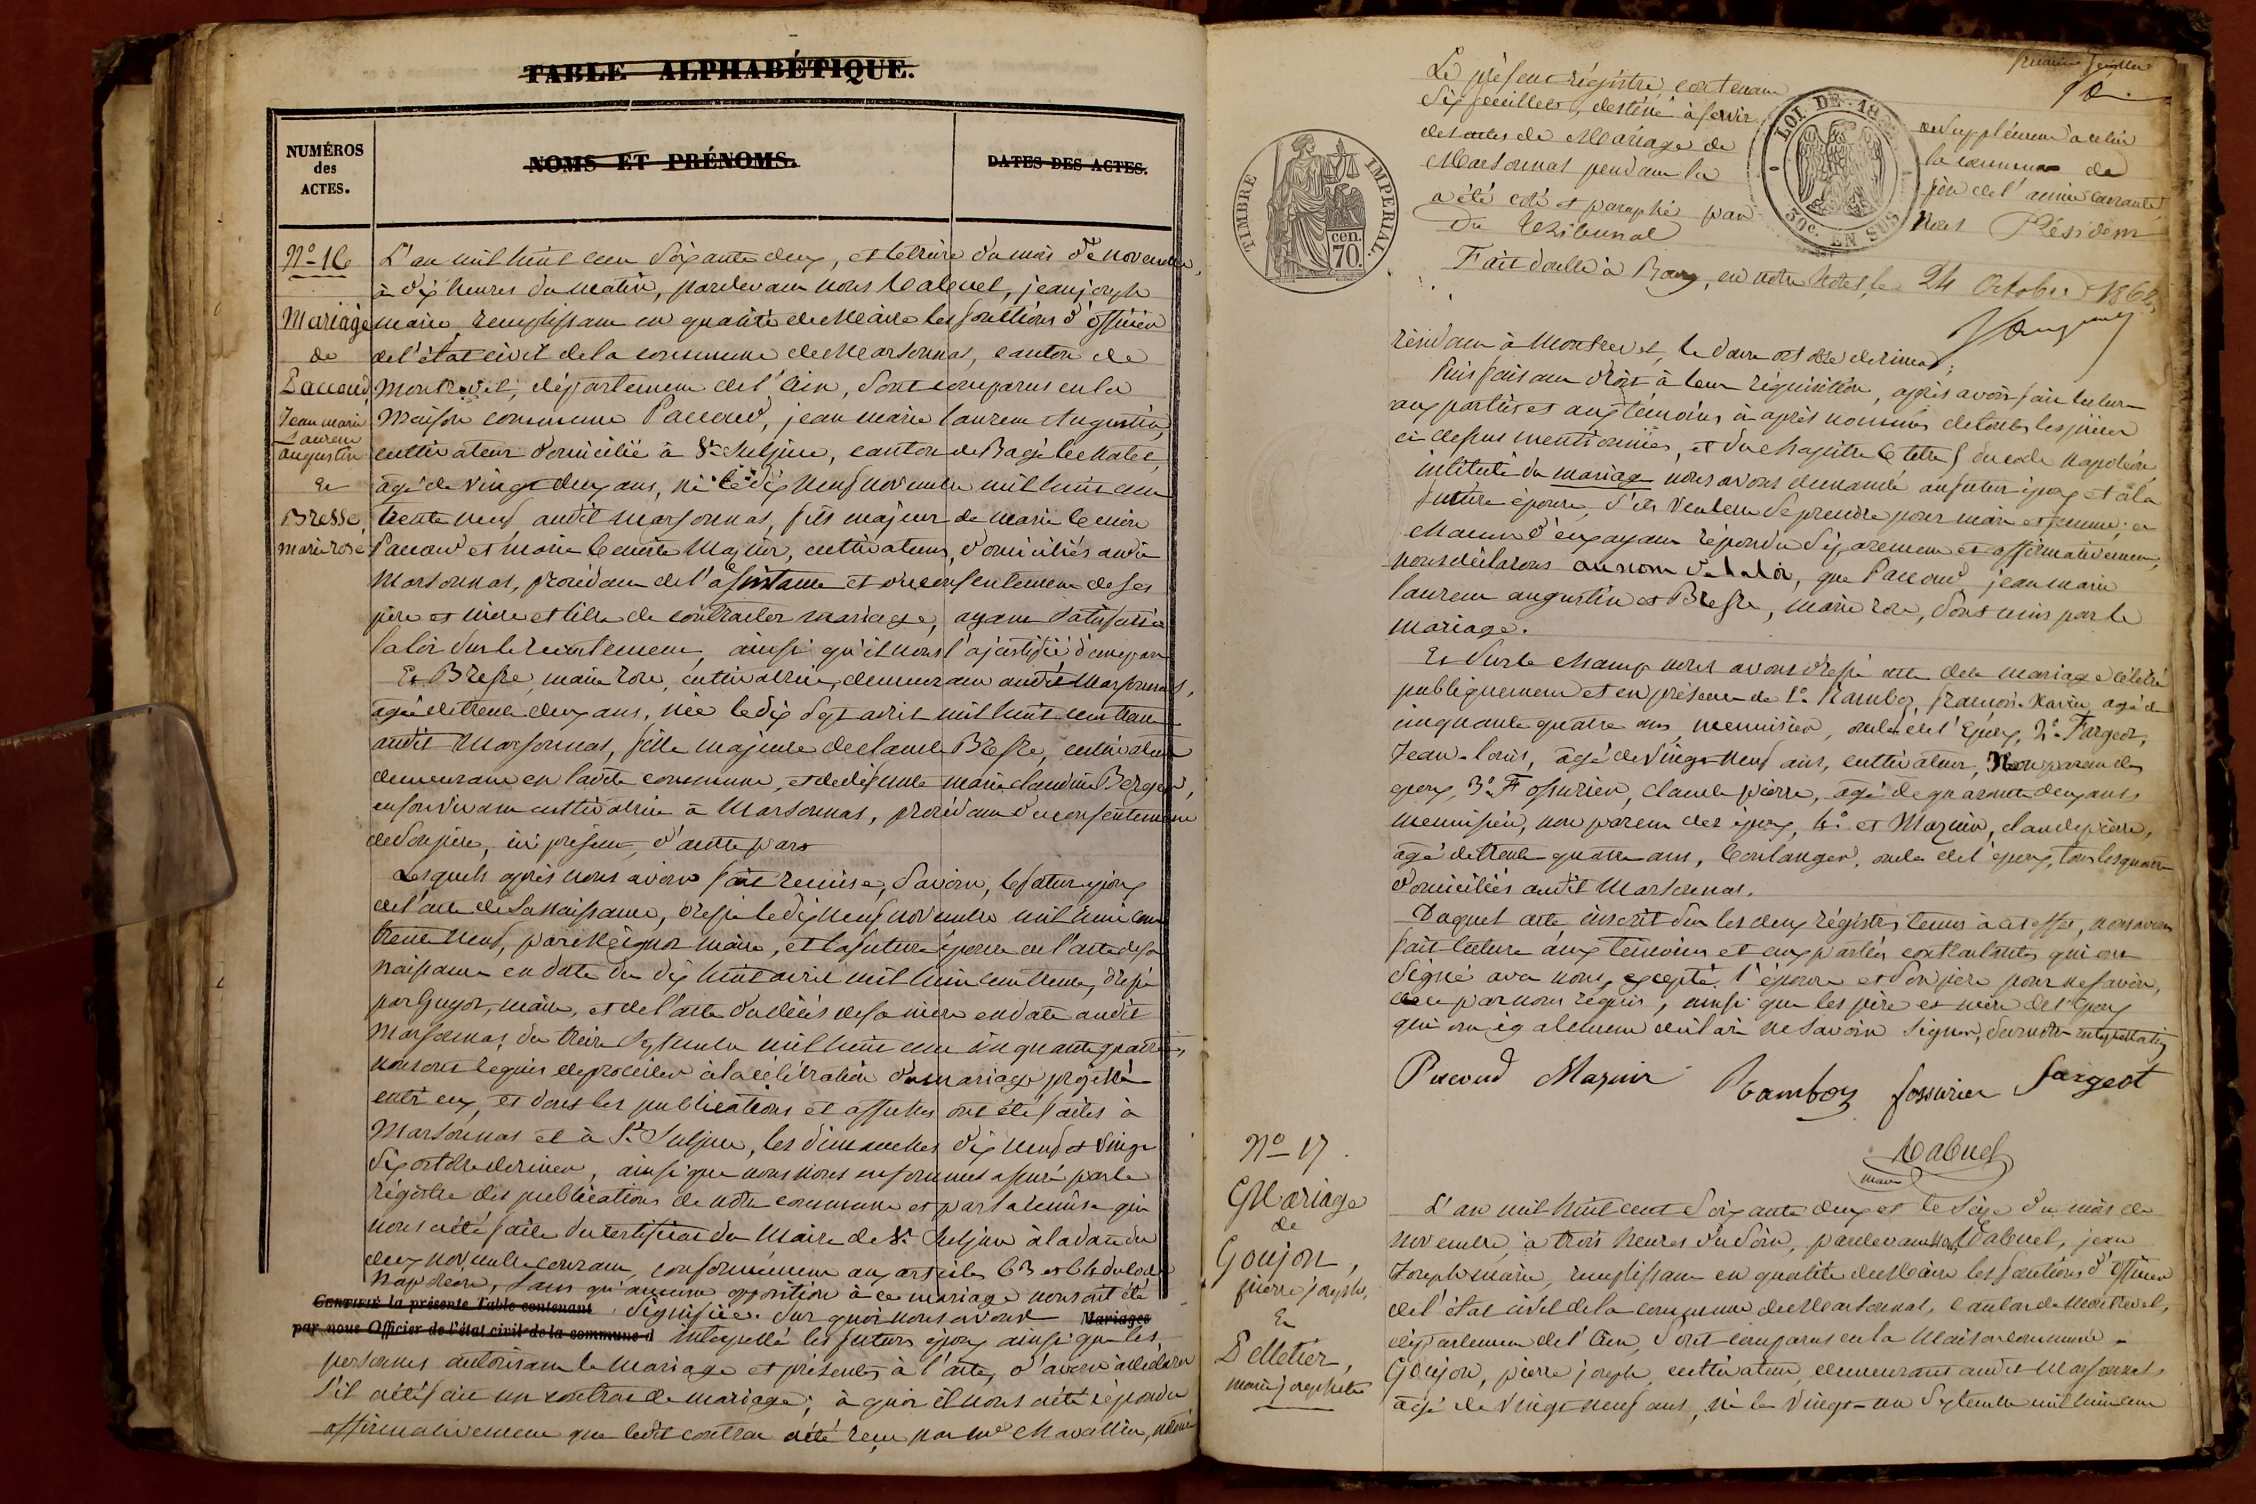 TABLE ALPHABÉTIQUE.
NUMÉROS
des
ACTES.
NOMS ET PRÉNOMS.
DATES DES ACTES.
N° 16
Mariage
de
Paccoud
Jean marie
Laurent
augustin
Et
Bresse,
marie rose
L'an mil huit cent soixante deux, et le treize du mois de novembre,
à dix heures du matin, pardevant nous Rabuel, jean joseph
maire, remplissant en qualité de Maire les fonctions d'officier
de l'état civil de la commune de Marsonnas, canton de
Montrevel, département de l'Ain, sont comparus en la
Maison commune Paccoud, jean marie laurent Augustin,
cultivateur domicilié à St Sulpice, canton de Bagé le Chatel,
agé de vingt deux ans, né le dix neuf novembre mil huit cent
trente neuf audit Marsonnas, fils majeur de marie
Paccoud et marie Mazuir, cultivateurs, domiciliés audit
Marsonnas, procédant de l'assistance et du consentement de ses
père et mère et libre de contracter mariage, ayant satisfait à
la loi sur le recrutement, ainsi qu'il nous l'a justifié d'une part
Et Bresse, marie rose, cultivatrice, demeurant audit Marsonnas,
agée de trente deux ans, née le dix sept avril mil huit cent trente
audit Marsonnas, fille majeure de claude Bresse, cultivateur
demeurant en ladite commune, et de défunte marie claudine Berger,
en son vivant cultivatrice à Marsonnas, procédant du consentement
de son père, ici présent, d'autre part
Lesquels après nous avoir fait remise, savoir, le futur époux
de l'acte de sa naissance, dressé le dix neuf novembre mil huit cent
trente neuf, par maire, et la future épouse de l'acte de sa
naissance en date du dix huit avril mil huit cent trente, dressé
par Guyot, maire, et de l'acte de décès de sa mère en date audit
Marsonnas du treize septembre mil huit cent cinquante quatre
nous ont requis de procéder à la célébration du mariage projetté
entr'eux, et dont les publications et affiches ont été faites à
Marsonnas et à St Sulpice, les dimanches dix neuf et vingt
six octobre dernier, ainsi que nous nous en sommes assuré par le
régistre des publications de notre commune et par la remise qui
nous a été faite du certificat du Maire de St Sulpice à la date du
deux novembre courant, conformément aux articles 63 et 64 du code
Napoléon, sans qu'aucune opposition à ce mariage nous ait été
CERTIFIÉ la présente Table contenant signifiée. Sur quoi nous avons Mariages
par nous Officier de l'état civil de la commune d interpellé les futurs époux ainsi que les
personnes autorisant le mariage et présentes à l'acte, d'avoir à déclarer
s'il a été fait un contrat de mariage; à quoi il nous a été répondu
affirmativement que ledit contrat a été reçu par me Chavallin, notaire
Le présent régistre, contenant
six feuillets, destiné à servir de supplément à celui
des actes de Mariage de la commune de
Marsonnas pendant la fin de l'année courante
a été coté et paraphé par Nous Président
du Tribunal
Fait double à Bourg, en notre hôtel, le 24 Octobre 1862
TIMBRE IMPERIAL.
cen.
70.
LOI DE 18
50c. EN SUS
résidant à Montrevel, le douze octobre dernier.
Puis faisant droit à leur réquisition, après avoir fait lecture
aux parties et aux témoins ci après nommés de toutes les pièces
ci dessus mentionnées, et du chapitre 6 titre 5 du code Napoléon
intitulé du mariage nous avons demandé au futur époux et à la
future épouse, s'ils veulent se prendre pour mari et femme; et
chacun d'eux ayant répondu séparement et affirmativement,
nous déclarons au nom de la loi, que Paccoud jean marie
laurent augustin et Bresse, marie rose, sont unis par le
mariage.
Et sur le champ nous avons dressé acte de ce mariage célébré
publiquement et en présence de 1° Ramboz, françois Marie, agé de
cinquante quatre ans, menuisier, oncle de l'époux, 2° Fargeot,
Jean-louis, agé de vingt neuf ans, cultivateur, Non parent des
époux, 3° Fossurier, claude pierre, agé de quarante deux ans
menuisier, non parent des époux, 4° et Mazuir, claude pierre,
agé de trente quatre ans, boulanger, oncle de l'époux, tous les quatre
domiciliés audit Marsonnas.
Duquel acte inscrit sur les deux régistres tenus à cet effet, nous avons
fait lecture aux témoins et aux parties contractantes qui ont
signé avec nous, excepté l'épouse et son père pour ne savoir,
de ce par nous requis, ainsi que les père et mère de l'époux
qui ont également déclaré ne savoir signer, sur notre interpellation
Paccoud Mazuir Ramboz fossurier fargeot
Rabuel
maire
N° 17.
Mariage
de
Goujon,
pierre joseph,
Et
Pelletier,
marie josephete
L'an mil huit cent soixante deux et le seize du mois de
novembre, à trois heures du soir, pardevant nous Rabuel, jean
Joseph maire, remplissant en qualité de Maire les fonctions d'officier
de l'état civil de la commune de Marsonnas, canton de Montrevel,
département de l'Ain, sont comparus en la Maison commune
Goujon, pierre joseph cultivateur, demeurant audit Marsonnas,
agé de vingt neuf ans, né le vingt-un septembre mil huit cent